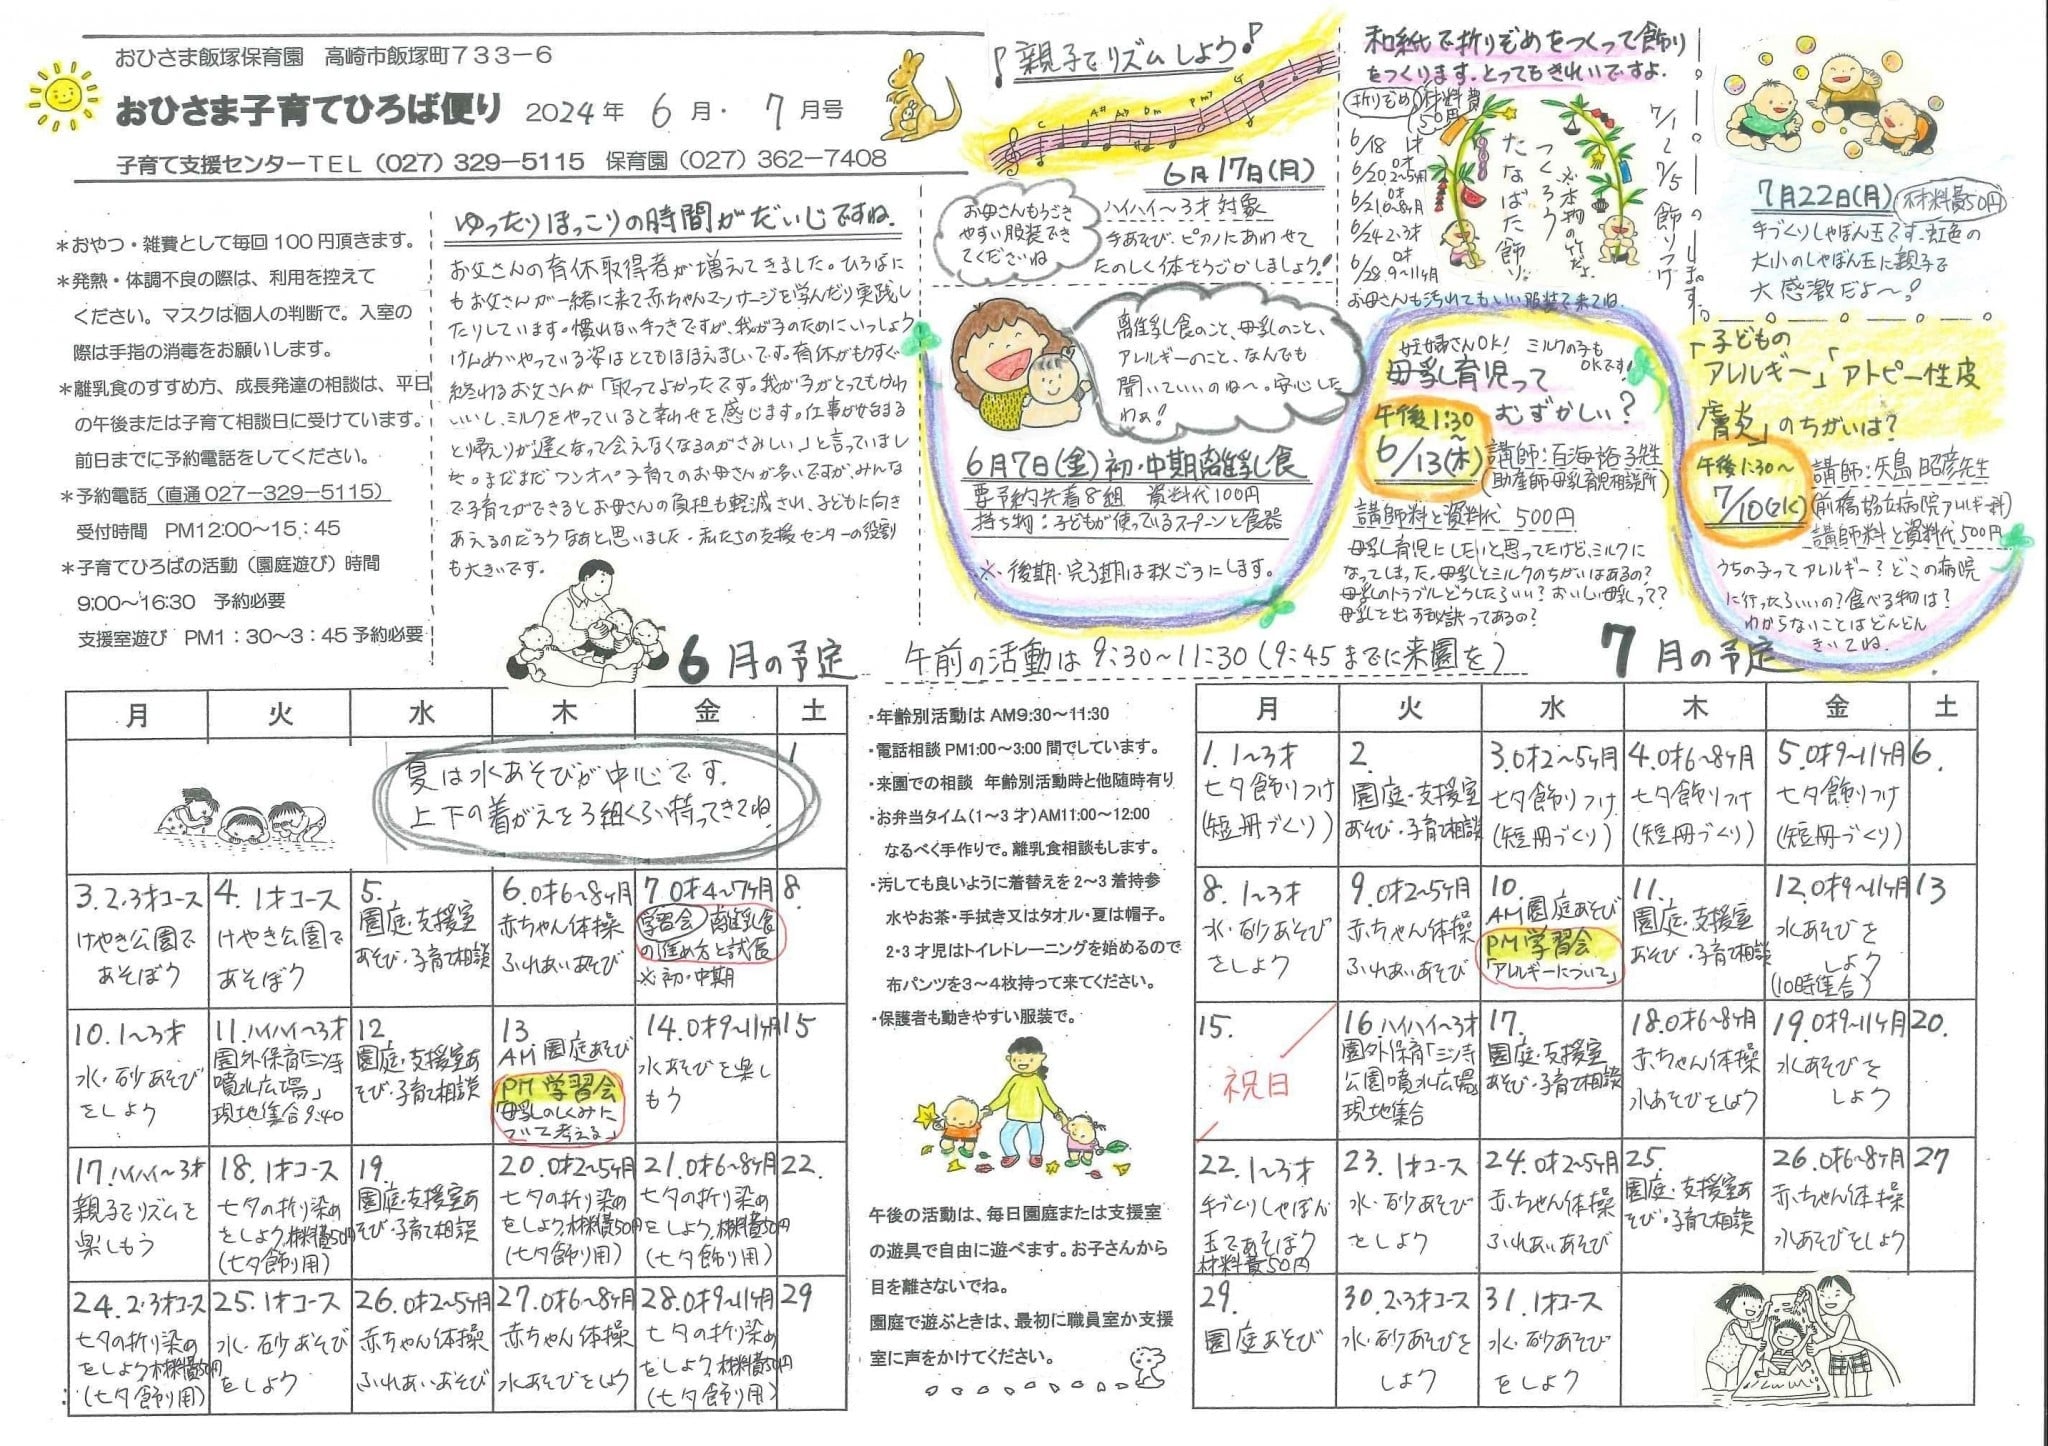 おひさま飯塚保育園 高崎市飯塚町733-6
おひさま子育てひろば便り 2024年 6月・7月号
子育て支援センターTEL(027)329-5115 保育園(027)362-7408
*おやつ・雑費として毎回100円頂きます。
*発熱・体調不良の際は、利用を控えて
ください。マスクは個人の判断で。入室の
際は手指の消毒をお願いします。
*離乳食のすすめ方、成長発達の相談は、平日
の午後または子育て相談日に受けています。
前日までに予約電話をしてください。
*予約電話(直通027-329-5115)
受付時間 PM12:00~15:45
*子育てひろばの活動(園庭遊び)時間
9:00~16:30 予約必要
支援室遊び PM1:30~3:45予約必要
ゆったりほっこりの時間がだいじですね.
お父さんの育休取得者が増えてきました。ひろばに
もお父さんが一緒に来て赤ちゃんマッサージを学んだり実践し
たりしています。慣れない手つきですが、我が子のためにいっしょう
けんめいやっている姿はとてもほほえましいです。育休がもうすぐ
終わるお父さんが「取ってよかったです。我が子がとってもかわ
いいし、ミルクをやっていると幸わせを感じます。仕事が始まる
と帰えりが遅くなって会えなくなるのがさみしい」と言っていまし
た。まだまだワンオペ子育てのお母さんが多いですが、みんな
で子育てができるとお母さんの負担も軽減され、子どもに向き
あえるのだろうなあと思いました。私たちの支援センターの役割
も大きいです。
親子でリズムしよう!
C A# Am Dm Pm7 G
6月17日(月)
お母さんもうごき
やすい服装でき
てくださいね
ハイハイ~3才対象
手あそび、ピアノにあわせて
たのしく体をうごかしましょう!
離乳食のこと、母乳のこと、
アレルギーのこと、なんでも
聞いていいのね~。安心した
わぁ!
6月7日(金)初・中期離乳食
要予約先着8組 資料代100円
持ち物:子どもが使っているスプーンと食器
※後期・完了期は秋ごろにします。
和紙で折りぞめをつくって飾り
をつくります。とってもきれいですよ。
折りぞめ 材料費
50円
6/18 1才
6/20 0才2~5ヶ月
6/21 0才6~8ヶ月
6/24 2・3才
6/28 0才9~11ヶ月
たなばた飾り
つくろう
※本物の竹だよ
7/1~7/5飾りつけ
のします。
お母さんも汚れてもいい服装で来てね。
7月22日(月) 材料費50円
手づくりしゃぼん玉です。虹色の
大小のしゃぼん玉に親子で
大感激だよ~!
妊婦さんOK! ミルクの子も
OKです!
母乳育児って
むずかしい?
午後1:30~
6/13(木)
講師:百海裕子先生
(助産師 母乳育児相談所)
講師料と資料代 500円
母乳育児にしたいと思ってたけど、ミルクに
なってしまった。母乳とミルクのちがいはあるの?
母乳のトラブルどうしたらいい?おいしい母乳って?
母乳を出す秘訣ってあるの?
「子どもの
アレルギー」「アトピー性皮
膚炎」のちがいは?
午後1:30~
7/10(水)
講師:矢島昭彦先生
(前橋協立病院アレルギー科)
講師料と資料代500円
うちの子ってアレルギー?どこの病院
に行ったらいいの?食べる物は?
わからないことはどんどん
きいてね。
6月の予定
午前の活動は9:30~11:30(9:45までに来園を)
7月の予定
月 火 水 木 金 土
夏は水あそびが中心です.
上下の着がえを3組くらい持ってきてね
1
3.2.3才コース
けやき公園で
あそぼう
4.1才コース
けやき公園で
あそぼう
5.
園庭・支援室
あそび・子育て相談
6.0才6~8ヶ月
赤ちゃん体操
ふれあいあそび
7.0才4~7ヶ月
学習会 離乳食
の進め方と試食
※初・中期
8.
10.1~3才
水・砂あそび
をしよう
11.ハイハイ~3才
園外保育「三ツ寺
噴水広場」
現地集合9:40
12.
園庭・支援室あ
そび・子育て相談
13.
AM園庭あそび
PM学習会
「母乳のしくみに
ついて考える」
14.0才9~11ヶ月
水あそびを楽し
もう
15
17.ハイハイ~3才
親子でリズムを
楽しもう
18.1才コース
七夕の折り染め
をしよう材料費50円
(七夕飾り用)
19.
園庭・支援室あ
そび・子育て相談
20.0才2~5ヶ月
七夕の折り染め
をしよう,材料費50円
(七夕飾り用)
21.0才6~8ヶ月
七夕の折り染め
をしよう,材料費50円
(七夕飾り用)
22.
24.2・3才コース
七夕の折り染め
をしよう材料費50円
(七夕飾り用)
25.1才コース
水・砂あそび
をしよう
26.0才2~5ヶ月
赤ちゃん体操
ふれあいあそび
27.0才6~8ヶ月
赤ちゃん体操
水あそびをしよう
28.0才9~11ヶ月
七夕の折り染め
をしよう,材料費50円
(七夕飾り用)
29
・年齢別活動はAM9:30~11:30
・電話相談PM1:00~3:00間でしています。
・来園での相談 年齢別活動時と他随時有り
・お弁当タイム(1~3才)AM11:00~12:00
なるべく手作りで。離乳食相談もします。
・汚しても良いように着替えを2~3着持参
水やお茶・手拭き又はタオル・夏は帽子。
2・3才児はトイレトレーニングを始めるので
布パンツを3~4枚持って来てください。
・保護者も動きやすい服装で。
午後の活動は、毎日園庭または支援室
の遊具で自由に遊べます。お子さんから
目を離さないでね。
園庭で遊ぶときは、最初に職員室か支援
室に声をかけてください。
月 火 水 木 金 土
1.1~3才
七夕飾りつけ
(短冊づくり)
2.
園庭・支援室
あそび・子育て相談
3.0才2~5ヶ月
七夕飾りつけ
(短冊づくり)
4.0才6~8ヶ月
七夕飾りつけ
(短冊づくり)
5.0才9~11ヶ月
七夕飾りつけ
(短冊づくり)
6.
8.1~3才
水・砂あそび
をしよう
9.0才2~5ヶ月
赤ちゃん体操
ふれあいあそび
10.
AM園庭あそび
PM学習会
「アレルギーについて」
11.
園庭・支援室
あそび・子育て相談
12.0才9~11ヶ月
水あそびを
しよう
(10時集合)
13
15.
祝日
16.ハイハイ~3才
園外保育「三ツ寺
公園噴水広場」
現地集合
17.
園庭・支援室
あそび・子育て相談
18.0才6~8ヶ月
赤ちゃん体操
水あそびをしよう
19.0才9~11ヶ月
水あそびを
しよう
20.
22.1~3才
手づくりしゃぼん
玉であそぼう
材料費50円
23.1才コース
水・砂あそび
をしよう
24.0才2~5ヶ月
赤ちゃん体操
ふれあいあそび
25.
園庭・支援室あ
そび・子育て相談
26.0才6~8ヶ月
赤ちゃん体操
水あそびをしよう
27
29.
園庭あそび
30.2・3才コース
水・砂あそびを
しよう
31.1才コース
水・砂あそび
をしよう